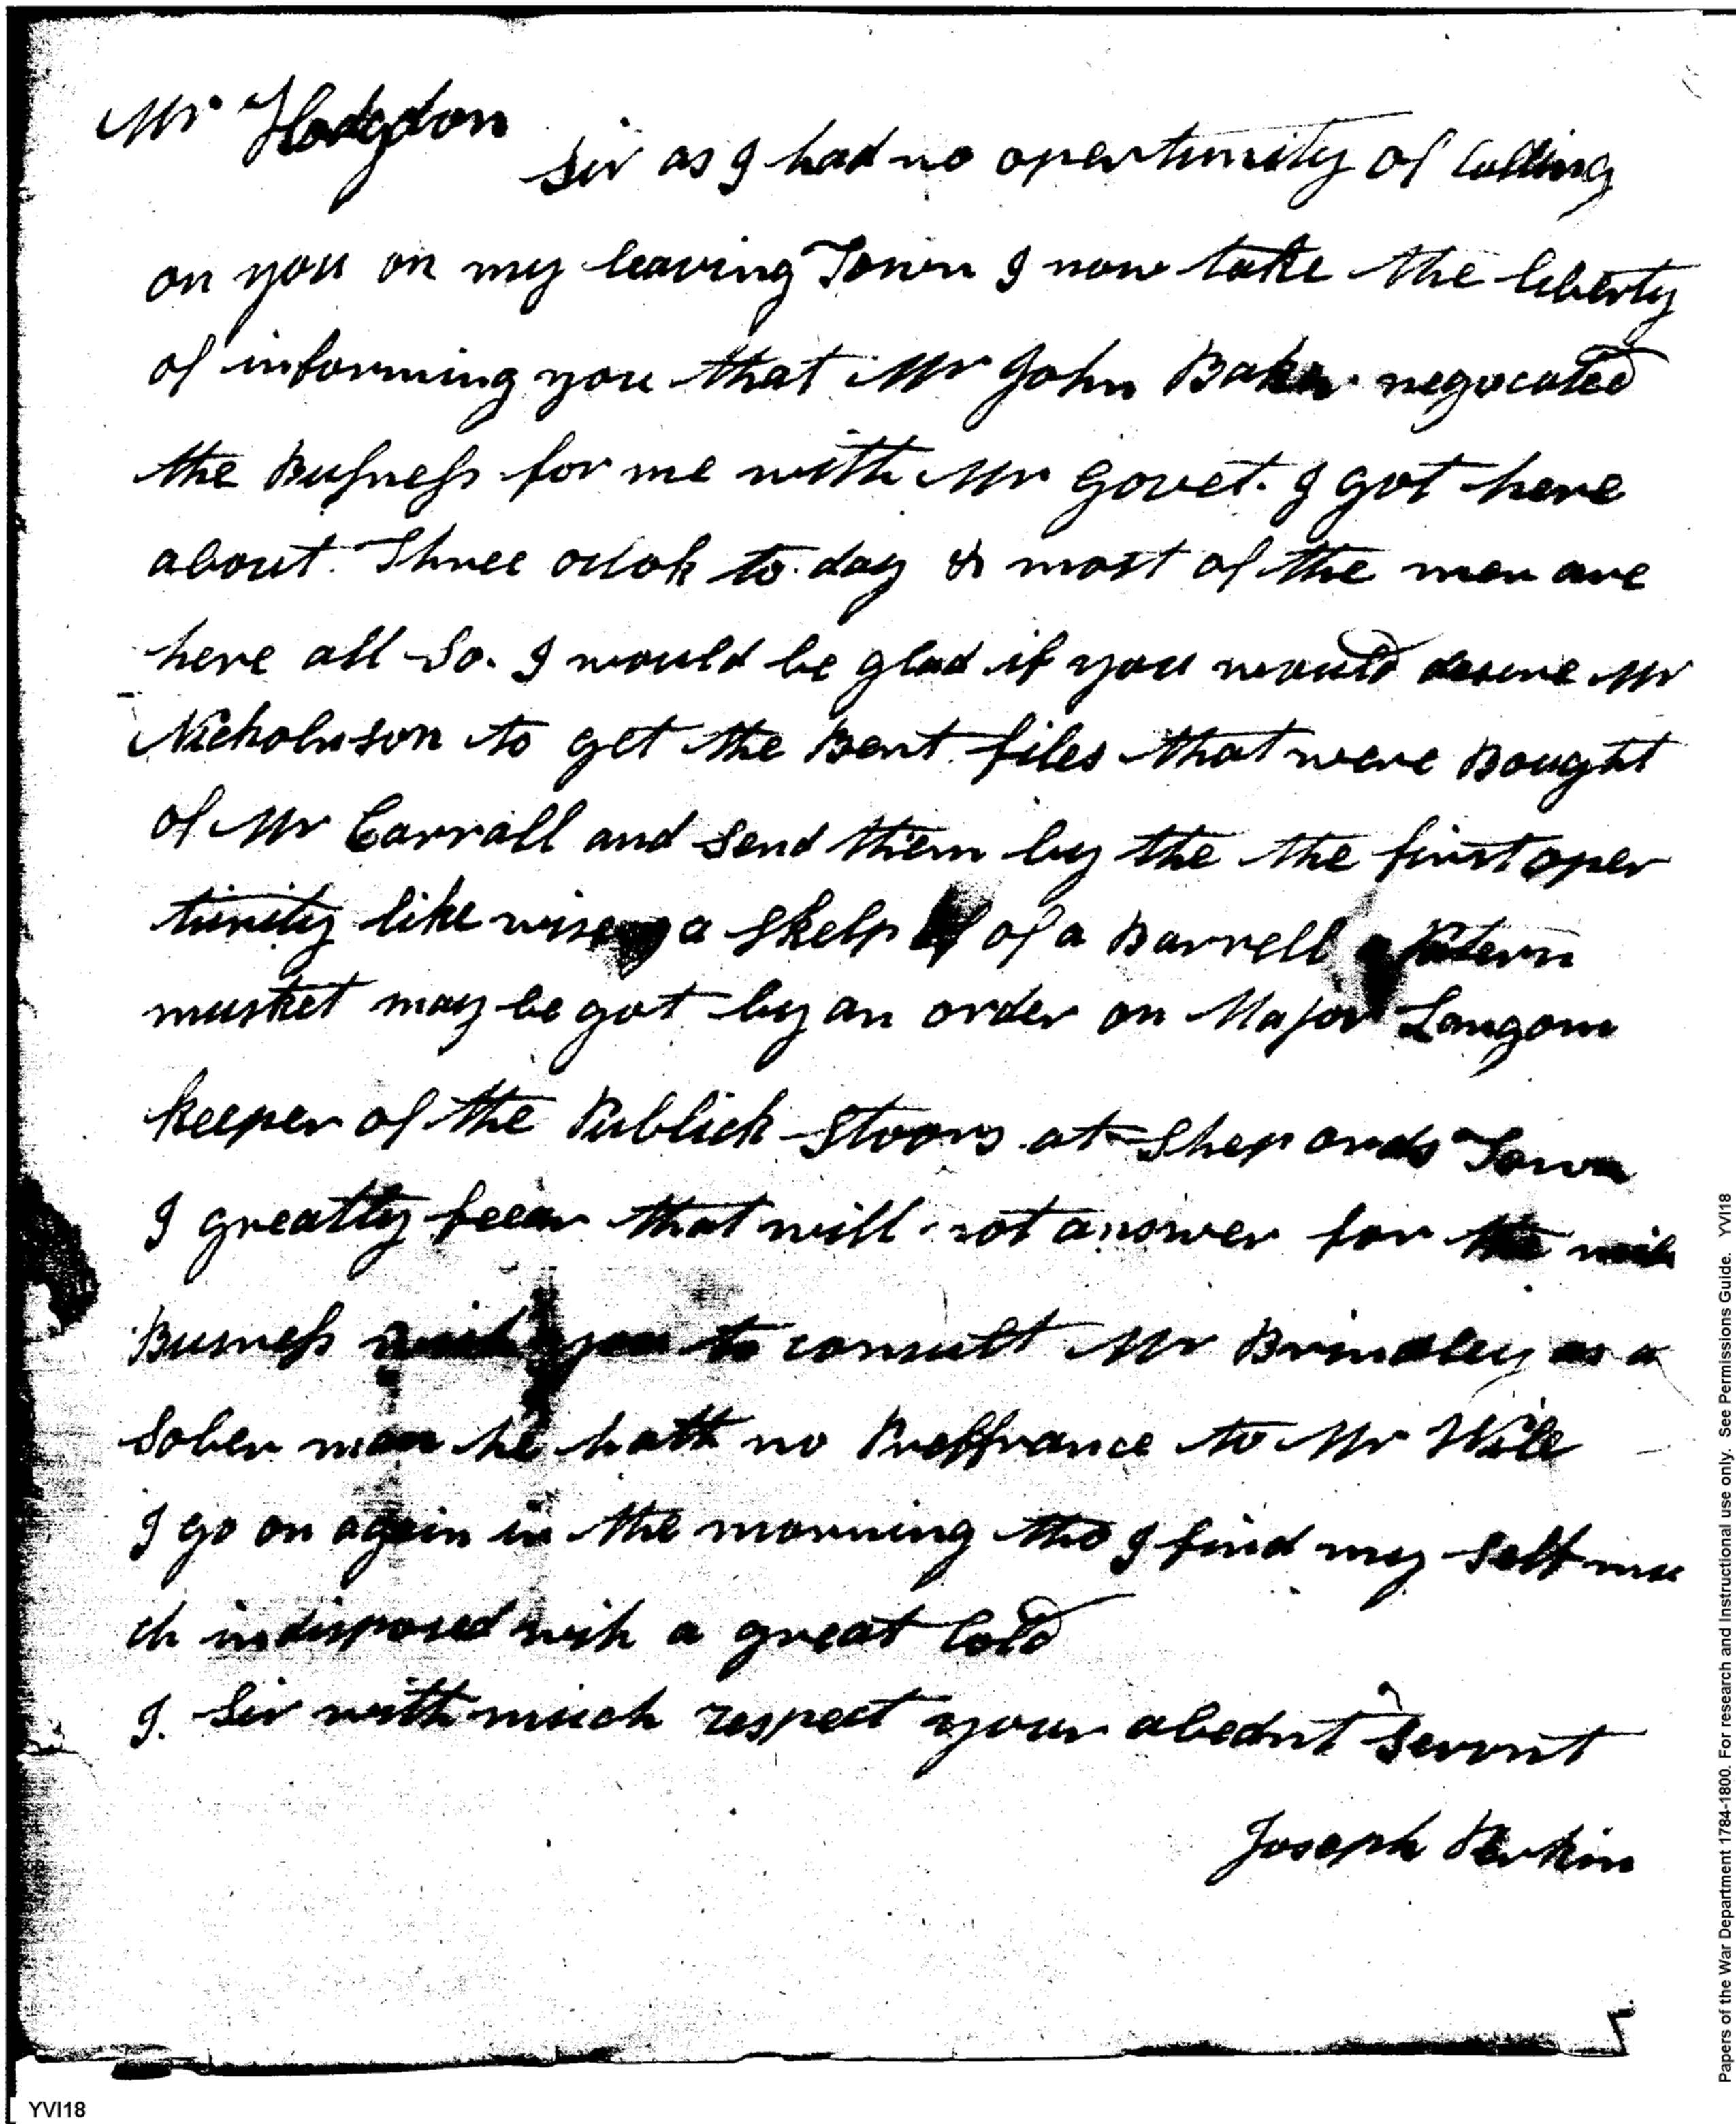 Mr Hodgdon
Sir as I had no opertunity of Calling
on you on my leaving Town I now take the liberty
of informing you that Mr John Baker negocated
the Busness for me with Mr Govet. I got here
about Three oclok to day & most of the men are
here all So. I would be glad if you would desire Mr
Nicholnson to get the Bent files that were Bought
of Mr Carrall and Send them by the the first oper
tunity like wise a Skelp of a Barrell a Patern
musket may be got by an order on Major Langom
keeper of the Publick Stoors at Sheperds Town
I greatly feear that will not answer for the
Busness to consult Mr Brindley as a
Sober man he hath no Preffrance to Mr
I go on again in the morning tho I find my Self mu
ch indisposed with a great Cold
I. Sir with much respect your abednt Servnt
Joseph Perkin
YVI18
Papers of the War Department 1784-1800. For research and Instructional use only. See Permissions Guide. YVI18